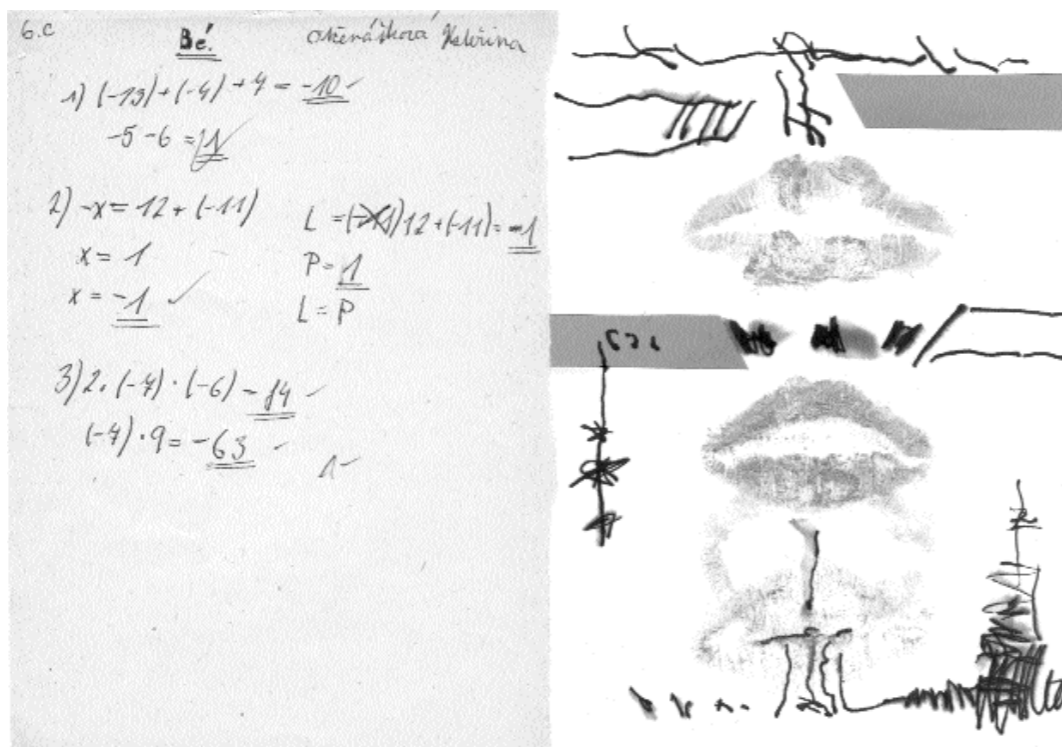 6.C
Bé.
Kateřina
1) (-13)+(-4)+7 = -10
-5-6 = 1
2) -x = 12+(-11)
x = 1
x = -1
L = 12+(-11) = -1
P = 1
L = P
3) 2.(-7).(-6) - 84
(-7).9 = -63
1-